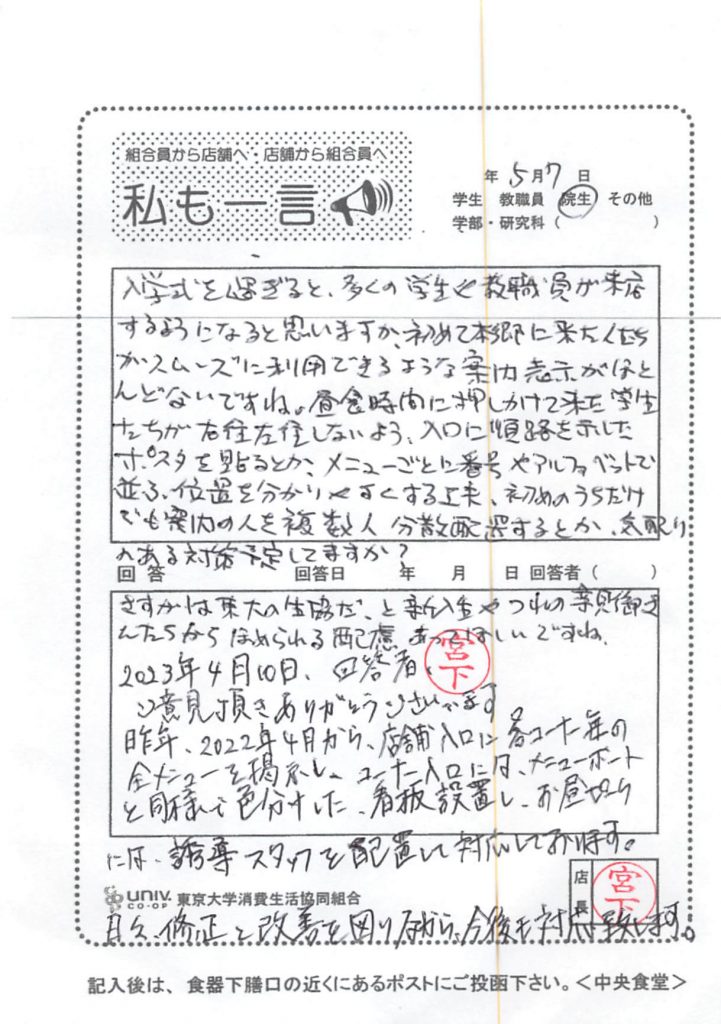 組合員から店舗へ・店舗から組合員へ
私も一言
年 5月7日
学生 教職員 院生 その他
学部・研究科( )
入学式を過ぎると、多くの学生や教職員が来店
するようになると思いますが、初めて本郷に来た人たち
がスムーズに利用できるような案内表示がほと
んどないですね。昼食時間に押しかけて来た学生
たちが右往左往しないよう、入口に順路を示した
ポスタを貼るとか、メニューごとに番号やアルファベットで
並ぶ位置を分かりやすくする工夫、初めのうちだけ
でも案内の人を複数人分散配置するとか、気配り
のある対策予定してますか?
回答 回答日 年 月 日 回答者( )
さすがは東大の生協だ、と新入生やつれの親御さ
んたちからほめられる配慮あってほしいですね。
2023年4月10日、回答者、
宮下
ご意見頂きありがとうございます
昨年、2022年4月から、店舗入口に各コーナー毎の
全メニューを掲示し、コーナー入口には、メニューボート
と同様で色分けした、看板設置し、お昼
には、誘導スタッフを配置して対応しております。
店長
宮下
univ. CO-OP 東京大学消費生活協同組合
日々、修正と改善を図りながら、今後も対応致します。
記入後は、食器下膳口の近くにあるポストにご投函下さい。<中央食堂>